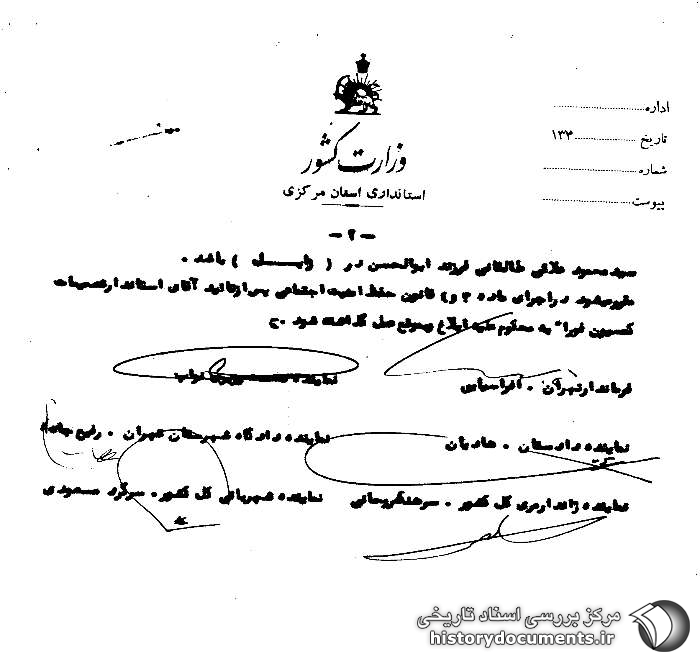 اداره
تاریخ ۱۳۳
شماره
پیوست
وزارت کشور
استانداری استان مرکزی
- ۲ -
سید محمود علائی طالقانی فرزند ابوالحسن در ( زابل ) باشد .
مقرر میشود در اجرای ماده ۳ و ٤ قانون حفظ امنیت اجتماعی پس از تائید آقای استاندار تصمیمات
کمیسیون فورا" به محکوم علیه ابلاغ و بموقع عمل گذاشته شود . ح
فرماندار تهران . افراسیابی نماینده نواب
نماینده دادستان . هادیان نماینده دادگاه شهرستان تهران . رفیع
نماینده ژاندارمری کل کشور . سرهنگ ریحانی نماینده شهربانی کل کشور . سرگرد مسعودی
مرکز بررسی اسناد تاریخی
historydocuments.ir